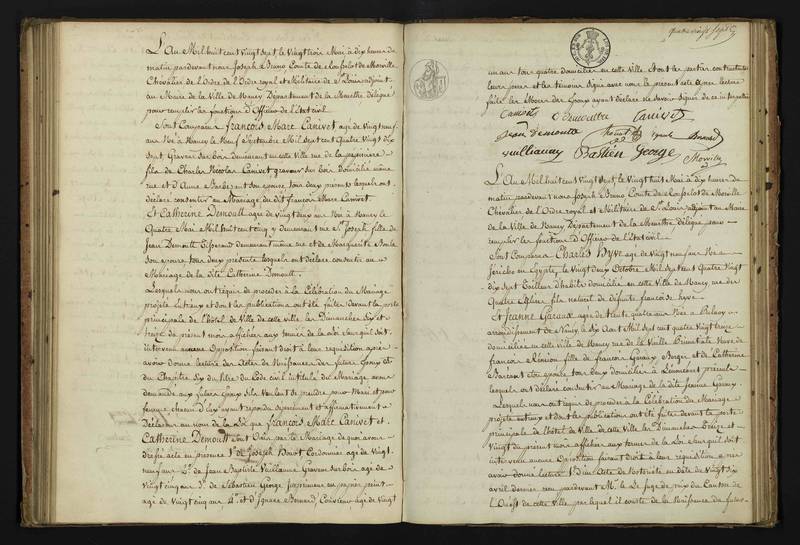 L'an Mil huit cent vingt sept, le vingt trois Mai à dix heures du
matin pardevant nous Joseph Bruno Comte de Morville
Chevalier de l'Ordre royal et Militaire de St Louis adjoint
au Maire de la Ville de Nancy Département de la Meurthe délégué
pour remplir les fonctions d'Officier de l'état civil.
Sont Comparus François Marc Canivet agé de Vingt neuf
ans Né à Nancy le Neuf Septembre Mil sept cent quatre Vingt dix
Sept Graveur sur bois demeurant en cette Ville rue de la pépinière
fils de Charles Nicolas Canivet graveur sur bois domicilié même
rue et d'Anne son épouse, tous deux présents lesquels ont
déclaré consentir au Mariage du dit François Marc Canivet
Et Catherine Demoult agée de vingt deux ans Née à Nancy le
Quatre Mai Mil huit cent cinq y demeurant rue St Joseph fille de
Jean Demoult demeurant même rue et de Marguerite
Son épouse, tous deux présents lesquels ont déclaré consentir au
Mariage de la dite Catherine Demoult.
Lesquels nous ont requis de procéder à la Célébration du Mariage
projeté entr'eux et dont les publications ont été faites devant la porte
principale de l'hôtel de Ville de cette ville, les Dimanches Six et
treize du présent mois affichées aux termes de la Loi sans qu'il soit
intervenu aucune Opposition faisant droit à leur réquisition après
avoir donné lecture des Actes de Naissance des futurs époux et
du Chapitre Six du titre du Code civil intitulé du Mariage avons
demandé aux futurs époux s'ils veulent se prendre pour Mari et pour
femme chacun d'eux ayant répondu séparément et affirmativement
Déclarons au nom de la Loi que François Marc Canivet et
Catherine Demoult sont Unis par le Mariage de quoi avons
dressé acte en présence 1° de Joseph Cordonnier agé de Vingt
neuf ans 2° de Jean Baptiste Vuillaume Graveur sur bois agé de
Vingt cinq ans 3° de Sébastien George imprimeur en papier peint
agé de Vingt cinq ans 4° et d'Ignace Bernard agé de Vingt
un ans tous quatre domiciliés en cette ville Et ont les parties contractantes
leurs pères et les témoins signé avec nous le présent acte après lecture
faite les Mères des époux ayant déclaré ne savoir signer de ce interpellées
Canivet C Demoulte Canivet
Jean demoulte Bernard
vuillaume Bastien George Morville
L'an Mil huit cent vingt sept, le vingt huit Mai à dix heures du
matin pardevant nous Joseph Bruno Comte de Morville
Chevalier de l'Ordre royal et Militaire de St Louis adjoint au Maire
de la Ville de Nancy Département de la Meurthe délégué pour
remplir les fonctions d'Officier de l'état civil
Sont Comparus Charles Hyve agé de vingt neuf ans Né à
Jéricho en Egypte, le vingt deux Octobre Mil sept cent quatre Vingt
dix sept Tailleur d'habits domicilié en cette Ville de Nancy rue des
Quatre Eglises fils naturel de défunte françoise hyve
Et Jeanne agée de trente quatre ans Née à Pulnoy
arrondissement de Nancy le dix Août Mil sept cent quatre Vingt treize
domiciliée en cette ville de Nancy rue de la Vieille Primatiale Veuve de
françois fille de françois Berger et de Catherine
son épouse tous deux domiciliés à
lesquels ont déclaré consentir au Mariage de la dite Jeanne
Lesquels nous ont requis de procéder à la Célébration du Mariage
projeté entr'eux et dont les publications ont été faites devant la porte
principale de l'hôtel de Ville de cette Ville les Dimanches treize et
Vingt du présent mois affichées aux termes de la Loi sans qu'il soit
intervenu aucune Opposition faisant droit à leur réquisition après
avoir donné lecture 1° d'un Acte de Notoriété en date du Vingt six
avril dernier reçu pardevant Mr le Juge de paix du Canton de
l'Ouest de cette Ville par lequel il conste de la Naissance du futur